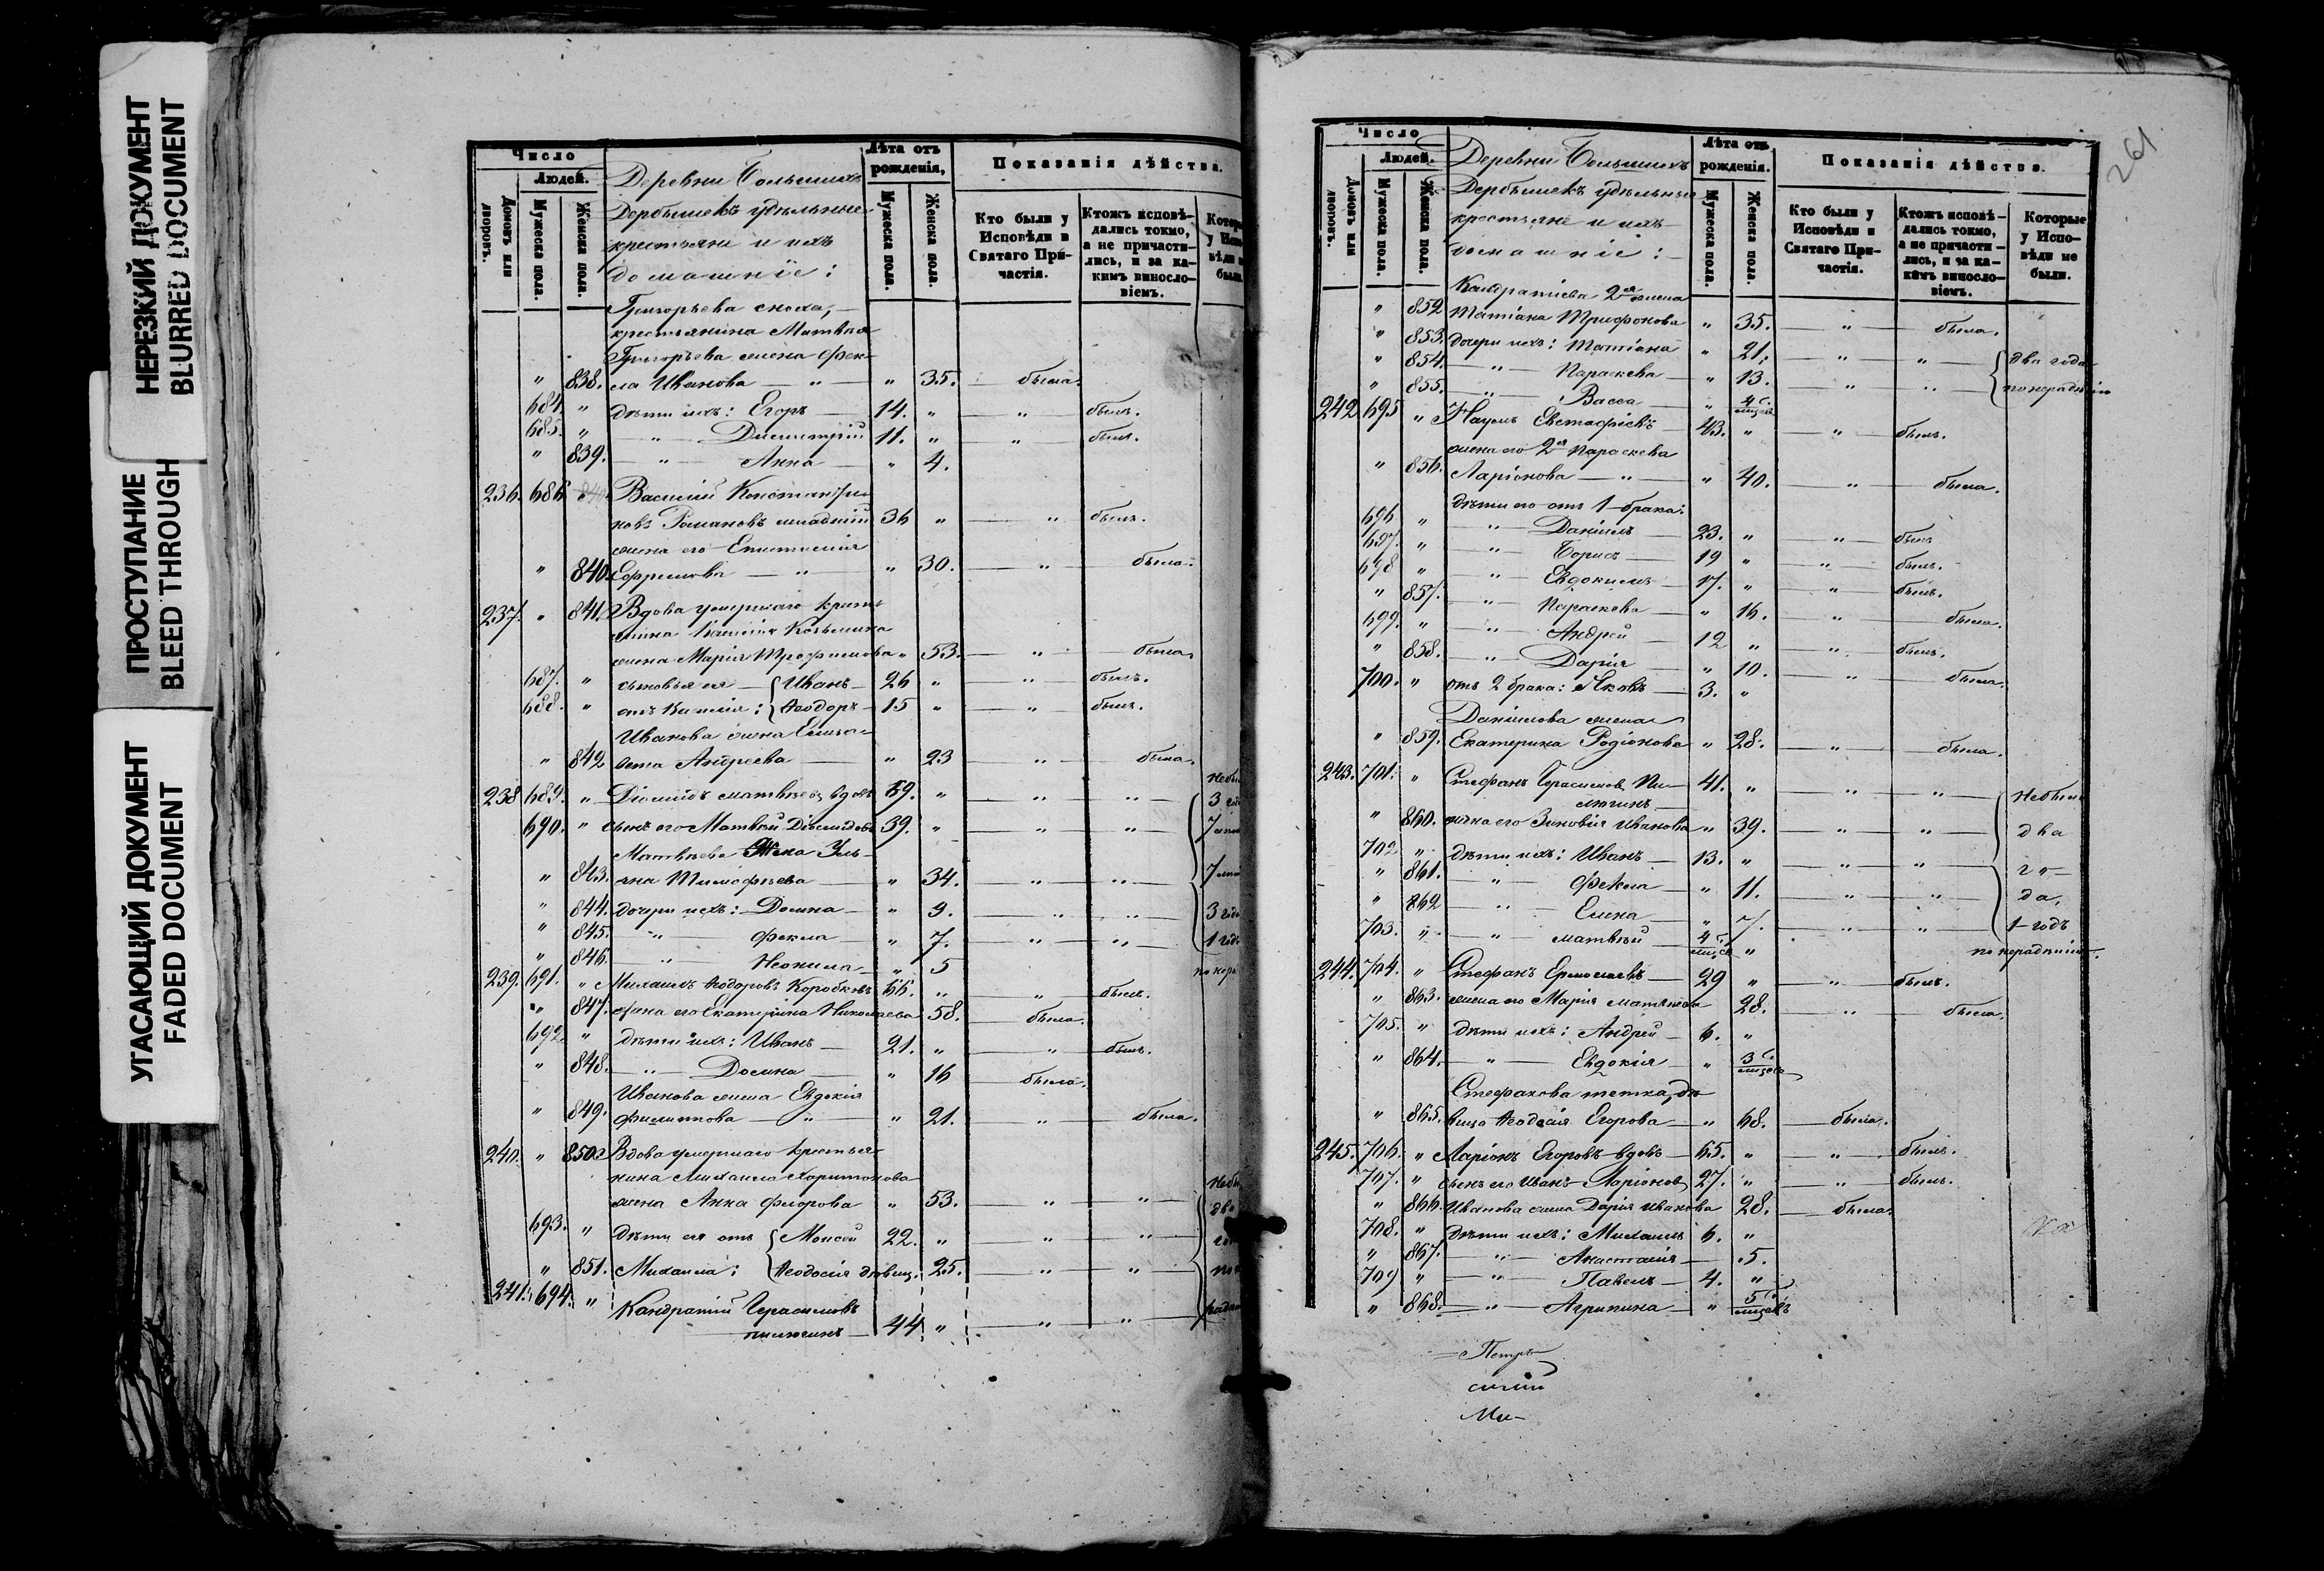 НЕРЕЗКИЙ ДОКУМЕНТ
BLURRED DOCUMENT
ПРОСТУПАНИЕ
BLEED THROUGH
УГАСАЮЩИЙ ДОКУМЕНТ
FADED DOCUMENT
Число
Домовъ или дворовъ.
Людей.
Мужеска пола.
Женска пола.
Деревни Большихъ
Дербышекъ удѣльные
крестьяне и ихъ
домашніе:
Лѣта отъ рожденія,
Мужеска пола.
Женска пола.
Показанія дѣйства.
Кто были у Исповѣди и Святаго Причастія.
Ктожъ исповѣдались токмо, а не причастились, и за какимъ винословіемъ.
Григорьева сноха,
крестьянина Матвѣя
Григорьева жена Фек-
" 838. ла Иванова — " — " 35. была.
684. " дѣти ихъ: Егоръ — 14. " " былъ.
685. " — " — Димитрій 11. " " былъ.
" 839. — " — Анна — " 4.
236. 686. " Василій Константи-
новъ Романовъ младшій 36 " " былъ.
жена его Епистимія
" 840. Ефремова — " — " 30. " была.
237. " 841. Вдова умершаго крест.
жена Марія Трофимова " 53. " была.
687. " сыновья ея — Иванъ — 26 " " былъ.
688. " отъ Василія: Ѳеодоръ — 15 " " былъ.
Иванова жена Елиса-
" 842 вета Андреева — " 23 " была.
238 689. " Діомидъ Матвѣевъ вдовъ 69. " " "
690. " сынъ его Матвѣй Діомидовъ 39. " " "
Матвѣева жена Уль-
" 843. яна Тимофѣева — " 34. " " 7
" 844. дочери ихъ: Домна — " 9. " " 3 года
" 845. — " — Фекла — " 7. " " 1 годъ
" 846. — " — Неонила — " 5
239. 691. " Михаилъ Ѳеодоровъ Коробковъ 66. " " былъ.
" 847. жена его Екатерина Николаева 58. была.
692. " дѣти ихъ: Иванъ — 21. " " былъ.
" 848. — " — Домна — " 16 была.
Иванова жена Евдокія
" 849. Филиппова — " — " 21. " была.
240. " 850. Вдова умершаго крестья-
нина Михаила Харитонова
жена Анна Федорова " 53. " "
693. " дѣти ея отъ Моисей 22. " " "
" 851. Михаила: Ѳеодосія дѣвиц. 25. " "
241. 694. " Кандратій Герасимовъ
пилюгинъ — 44 " " "
261
Число
Домовъ или дворовъ.
Людей.
Мужеска пола.
Женска пола.
Деревни Большихъ
Дербышекъ удѣльные
крестьяне и ихъ
домашніе:
Лѣта отъ рожденія.
Мужеска пола.
Женска пола.
Показанія дѣйства.
Кто были у Исповѣди и Святаго Причастія.
Ктожъ исповѣдались токмо, а не причастились, и за какимъ винословіемъ.
Которые у Исповѣди не были.
Кандратіева 2я жена
" 852 Татіана Трифонова " 35. " была.
" 853. дочери ихъ: Татіана " 21. " " два года
" 854. — " — Параскева — " 13. " " по нерадѣнію
" 855. — " — Васса — "
242 695 " Наумъ Евстафіевъ 43. " " былъ.
жена его 2я Параскева
" 856. Ларіонова — " — " 40. " была.
дѣти его отъ 1 брака:
696 " — " — Даніилъ — 23. " " былъ
697. " — " — Борисъ — 19 " " былъ.
698 " — " — Евдокимъ — 17. " " былъ.
" 857. — " — Параскева — " 16. " была.
699. " — " — Андрей — 12 " " былъ.
" 858. — " — Дарія — " 10. " была.
700. " отъ 2 брака: Яковъ — 3. "
Даніилова жена
" 859. Екатерина Родіонова " 28. " была.
243. 701. " Стефанъ Герасимовъ Пи-
люгинъ 41. " " " небыли
" 860. жена его Зиновія Иванова " 39. " " два
702 " дѣти ихъ: Иванъ — 13. " " " го-
" 861. — " — Фекла — " 11. " " да,
" 862 — " — Елена — " 7. " " 1 годъ
703. " — " — Матвѣй — " по нерадѣнію.
244. 704. " Стефанъ Ермолаевъ — 29 " " былъ.
" 863. жена его Марія Матвѣева 28. " была.
705. " дѣти ихъ: Андрей — 6. "
" 864. — " — Евдокія — "
Стефанова тетка, дѣ-
" 865. вица Ѳеодосія Егорова — " 68. была.
245. 706. " Ларіонъ Егоровъ вдовъ — 65. " " былъ.
707. " сынъ его Иванъ Ларіоновъ 27. " " былъ.
" 866. Иванова жена Дарія Иванова 28. была.
708. " дѣти ихъ: Михаилъ 6. "
" 867. — " — Анастасія — 5.
709 " — " — Павелъ — 4. "
" 868. — " — Агрипина — "
Петръ
Ми-